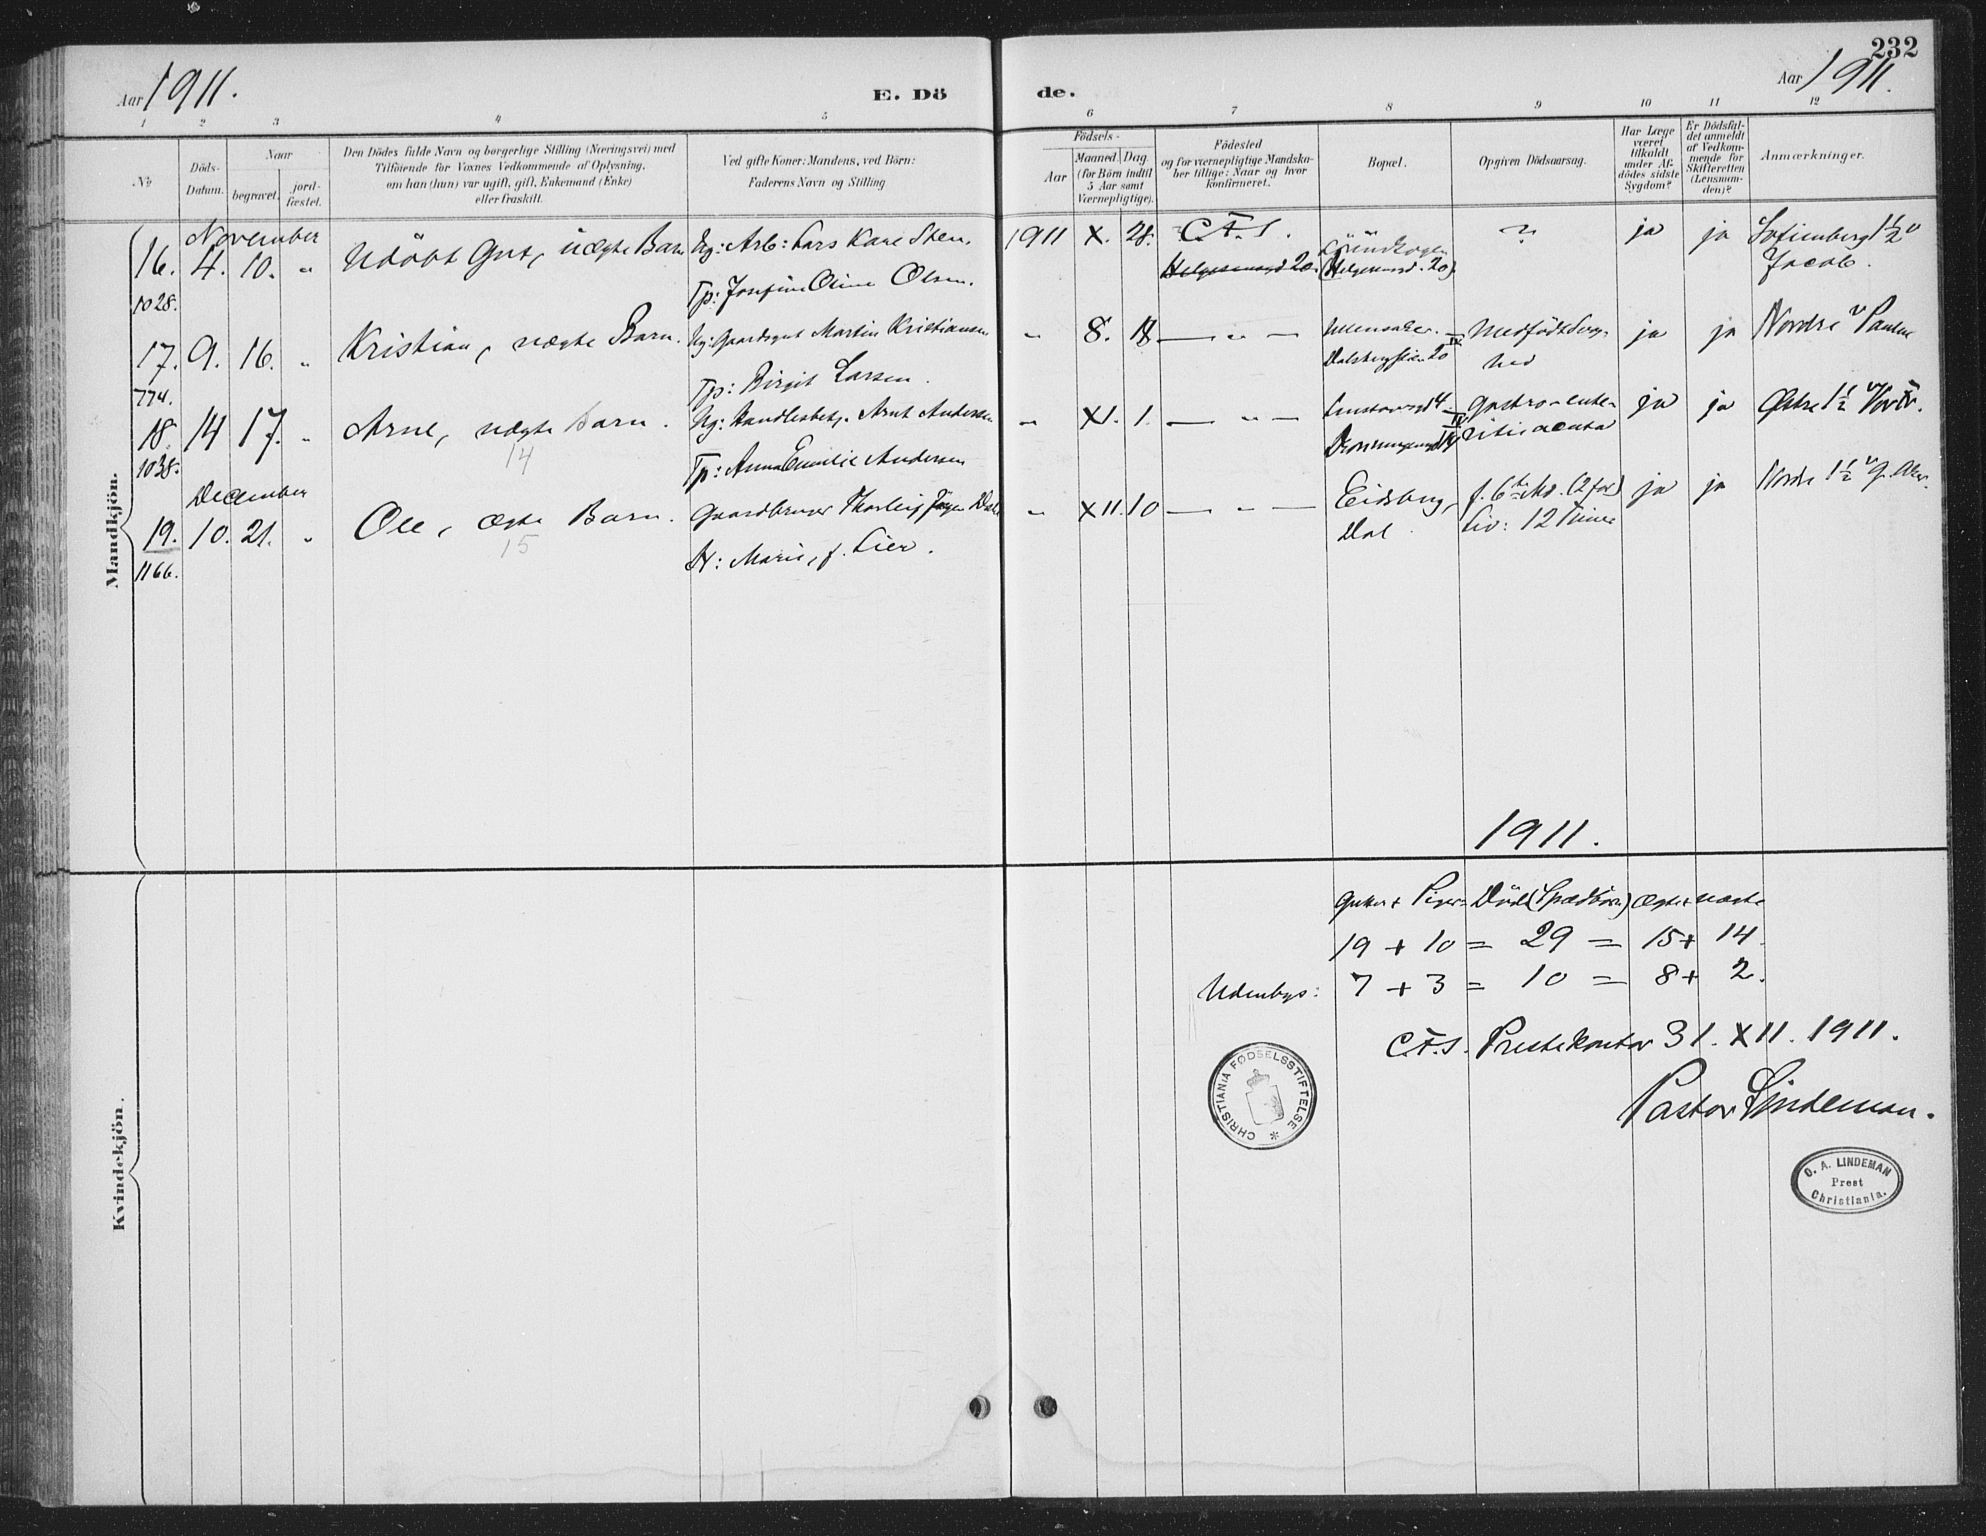 232
Aar 1911.
E. Dö
de.
Aar 1911.
1 2 3 4 5 6 7 8 9 10 11 12
No
Döds-
Datum.
Naar
begravet.
jord-
fæstet.
Den Dödes fulde Navn og borgerlige Stilling (Næringsvei) med
Tilföiende for Voxnes Vedkommende af Oplysning,
om han (hun) var ugift, gift, Enkemand (Enke)
eller fraskilt.
Ved gifte Koner: Mandens, ved Börn:
Faderens Navn og Stilling
Födsels-
Aar
Maaned. Dag.
(for Börn indtil
5 Aar samt
Værnepligtige).
Födested
og for værnepligtige Mandska-
ber tillige: Naar og hvor
konfirmeret.
Bopæl.
Opgiven Dödsaarsag.
Har Læge
været
tilkaldt
under Af-
dödes sidste
Sygdom?
Er Dödsfal-
det anmeldt
af Vedkom-
mende for
Skifteretten
(Lensman-
den)?
Anmærkninger.
Mandkjön.
November
16. 4. 10. " Udöbt Gut, uægte Barn Ug: Arb: Lars Kare Sten. 1911 X. 28. C.F.S. ? ja ja Sofienberg 1½ v
1028. Tp: Josefine Oline Olsen. Helgesensgd 20. (Helgesensgd. 20) Jacob.
17. 9. 16. " Kristian, uægte Barn. Ug: Gaardsgut Martin Kristiansen " 8. 18 — " — Ullensaker. Medfödt Svag- ja ja Nordre v Paulus
774. Tp: Birgit Larsen. Dalsbergstien 20 hed
18. 14 17. " Arne, uægte Barn. Ug: Handlesbetj. Arnt Andersen " XI. 1. — " — Gastro-ente- ja ja Östre 1½ v Vor Fr.
1038. 14 Tp: Anna Emilie Andersen ritis acuta
December
19. 10. 21. " Ole, ægte Barn. Gaardbruger Thorleif Dahl " XII. 10 — " — Eidsberg, f. 6te Md. (2 for) ja ja Nordre 1½ v G. Aker.
1166. 15 H: Marie, f. Lier. Dal Liv: 12 Timer
1911.
Gutter + Piger = Döde (Spædbörn) Ægte + Uægte
19 + 10 = 29 = 15 + 14.
Udenbys: 7 + 3 = 10 = 8 + 2.
C.F.S. Prestekontor 31. XII. 1911.
Pastor Lindeman.
CHRISTIANIA FØDSELSSTIFTELSE *
O. A. LINDEMAN
Prest
Christiania.
Kvindekjön.